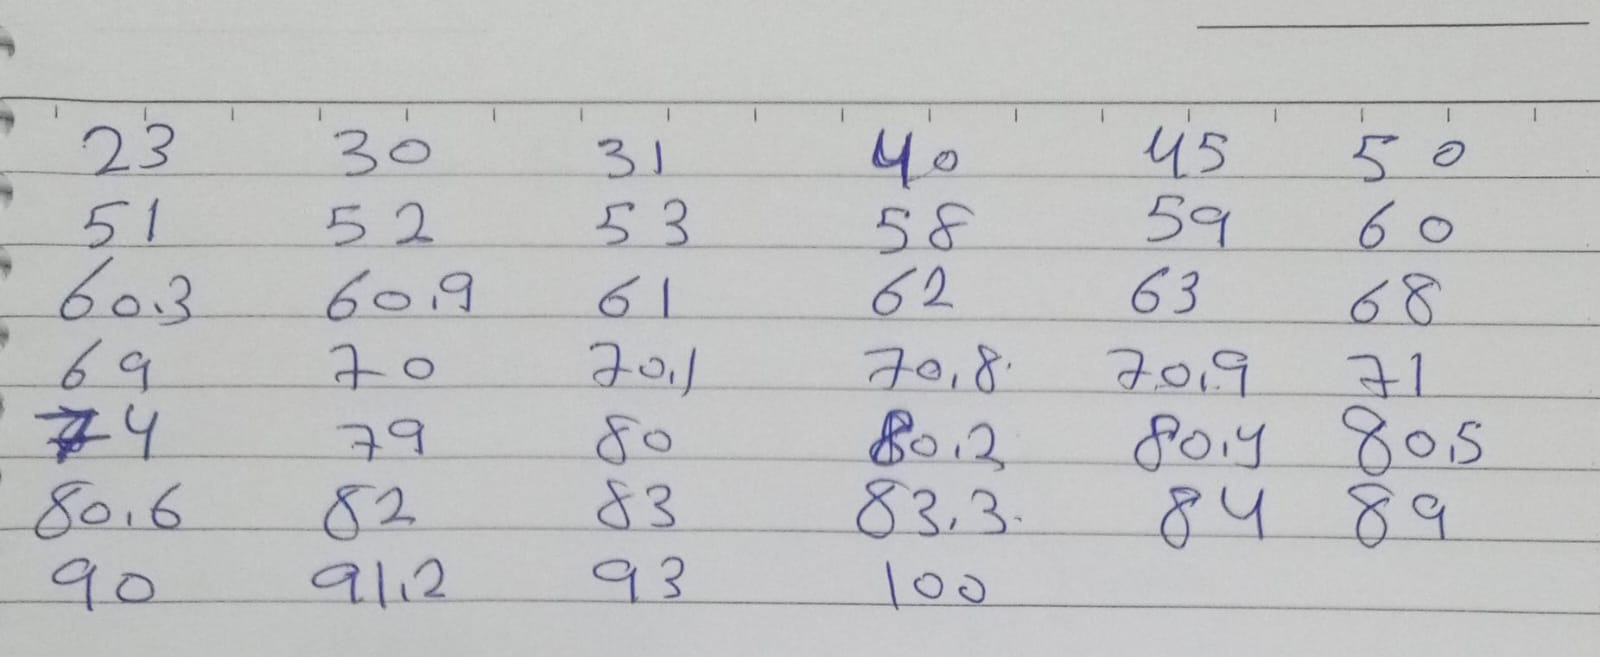 23 30 31 40 45 50
51 52 53 58 59 60
60.3 60.9 61 62 63 68
69 70 70.1 70.8 70.9 71
74 79 80 80.2 80.4 80.5
80.6 82 83 83.3 84 89
90 91.2 93 100